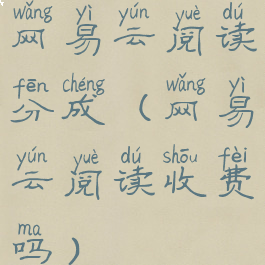 wǎng yì yún yuè dú
网易云阅读
fēn chéng wǎng yì
分成(网易
yún yuè dú shōu fèi
云阅读收费
ma
吗)